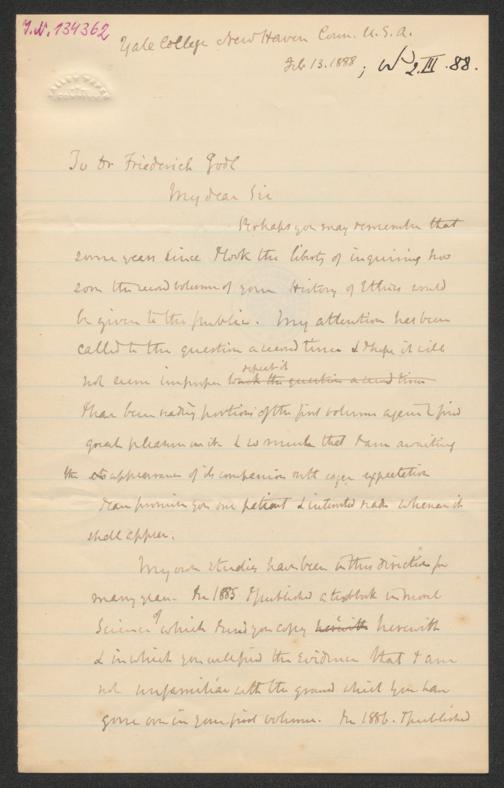 J.N. 134362
Yale College New Haven Conn. U.S.A.
Feb 13. 1888 ; 2.III.88.
To Dr Friederich Jodl
My dear Sir
Perhaps you may remember that
some years since I took the liberty of inquiring how
soon the second volume of your History of Ethics would
be given to the public. My attention has been
called to the question a second time & I hope it will
not seem improper repeat it the question a second time
I have been reading portions of the first volume again & find
great pleasure in it & so much that I am awaiting
the appearance of its companion with eager expectation
I can promise you one patient & interested reader whenever it
shall appear.
My own studies have been in this direction for
many years. In 1885 I published a textbook in moral
Science of which I send you copy herewith herewith
& in which you will find the evidence that I am
not unfamiliar with the ground which you have
gone over in your first volume. In 1886. I published